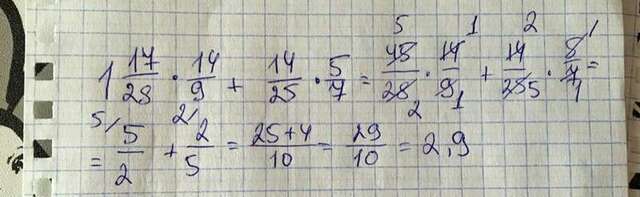 1 17/28 · 14/9 + 14/25 · 5/7 = 45/28 · 14/9 + 14/25 · 5/7 =
= 5/2 + 2/5 = (25+4)/10 = 29/10 = 2,9